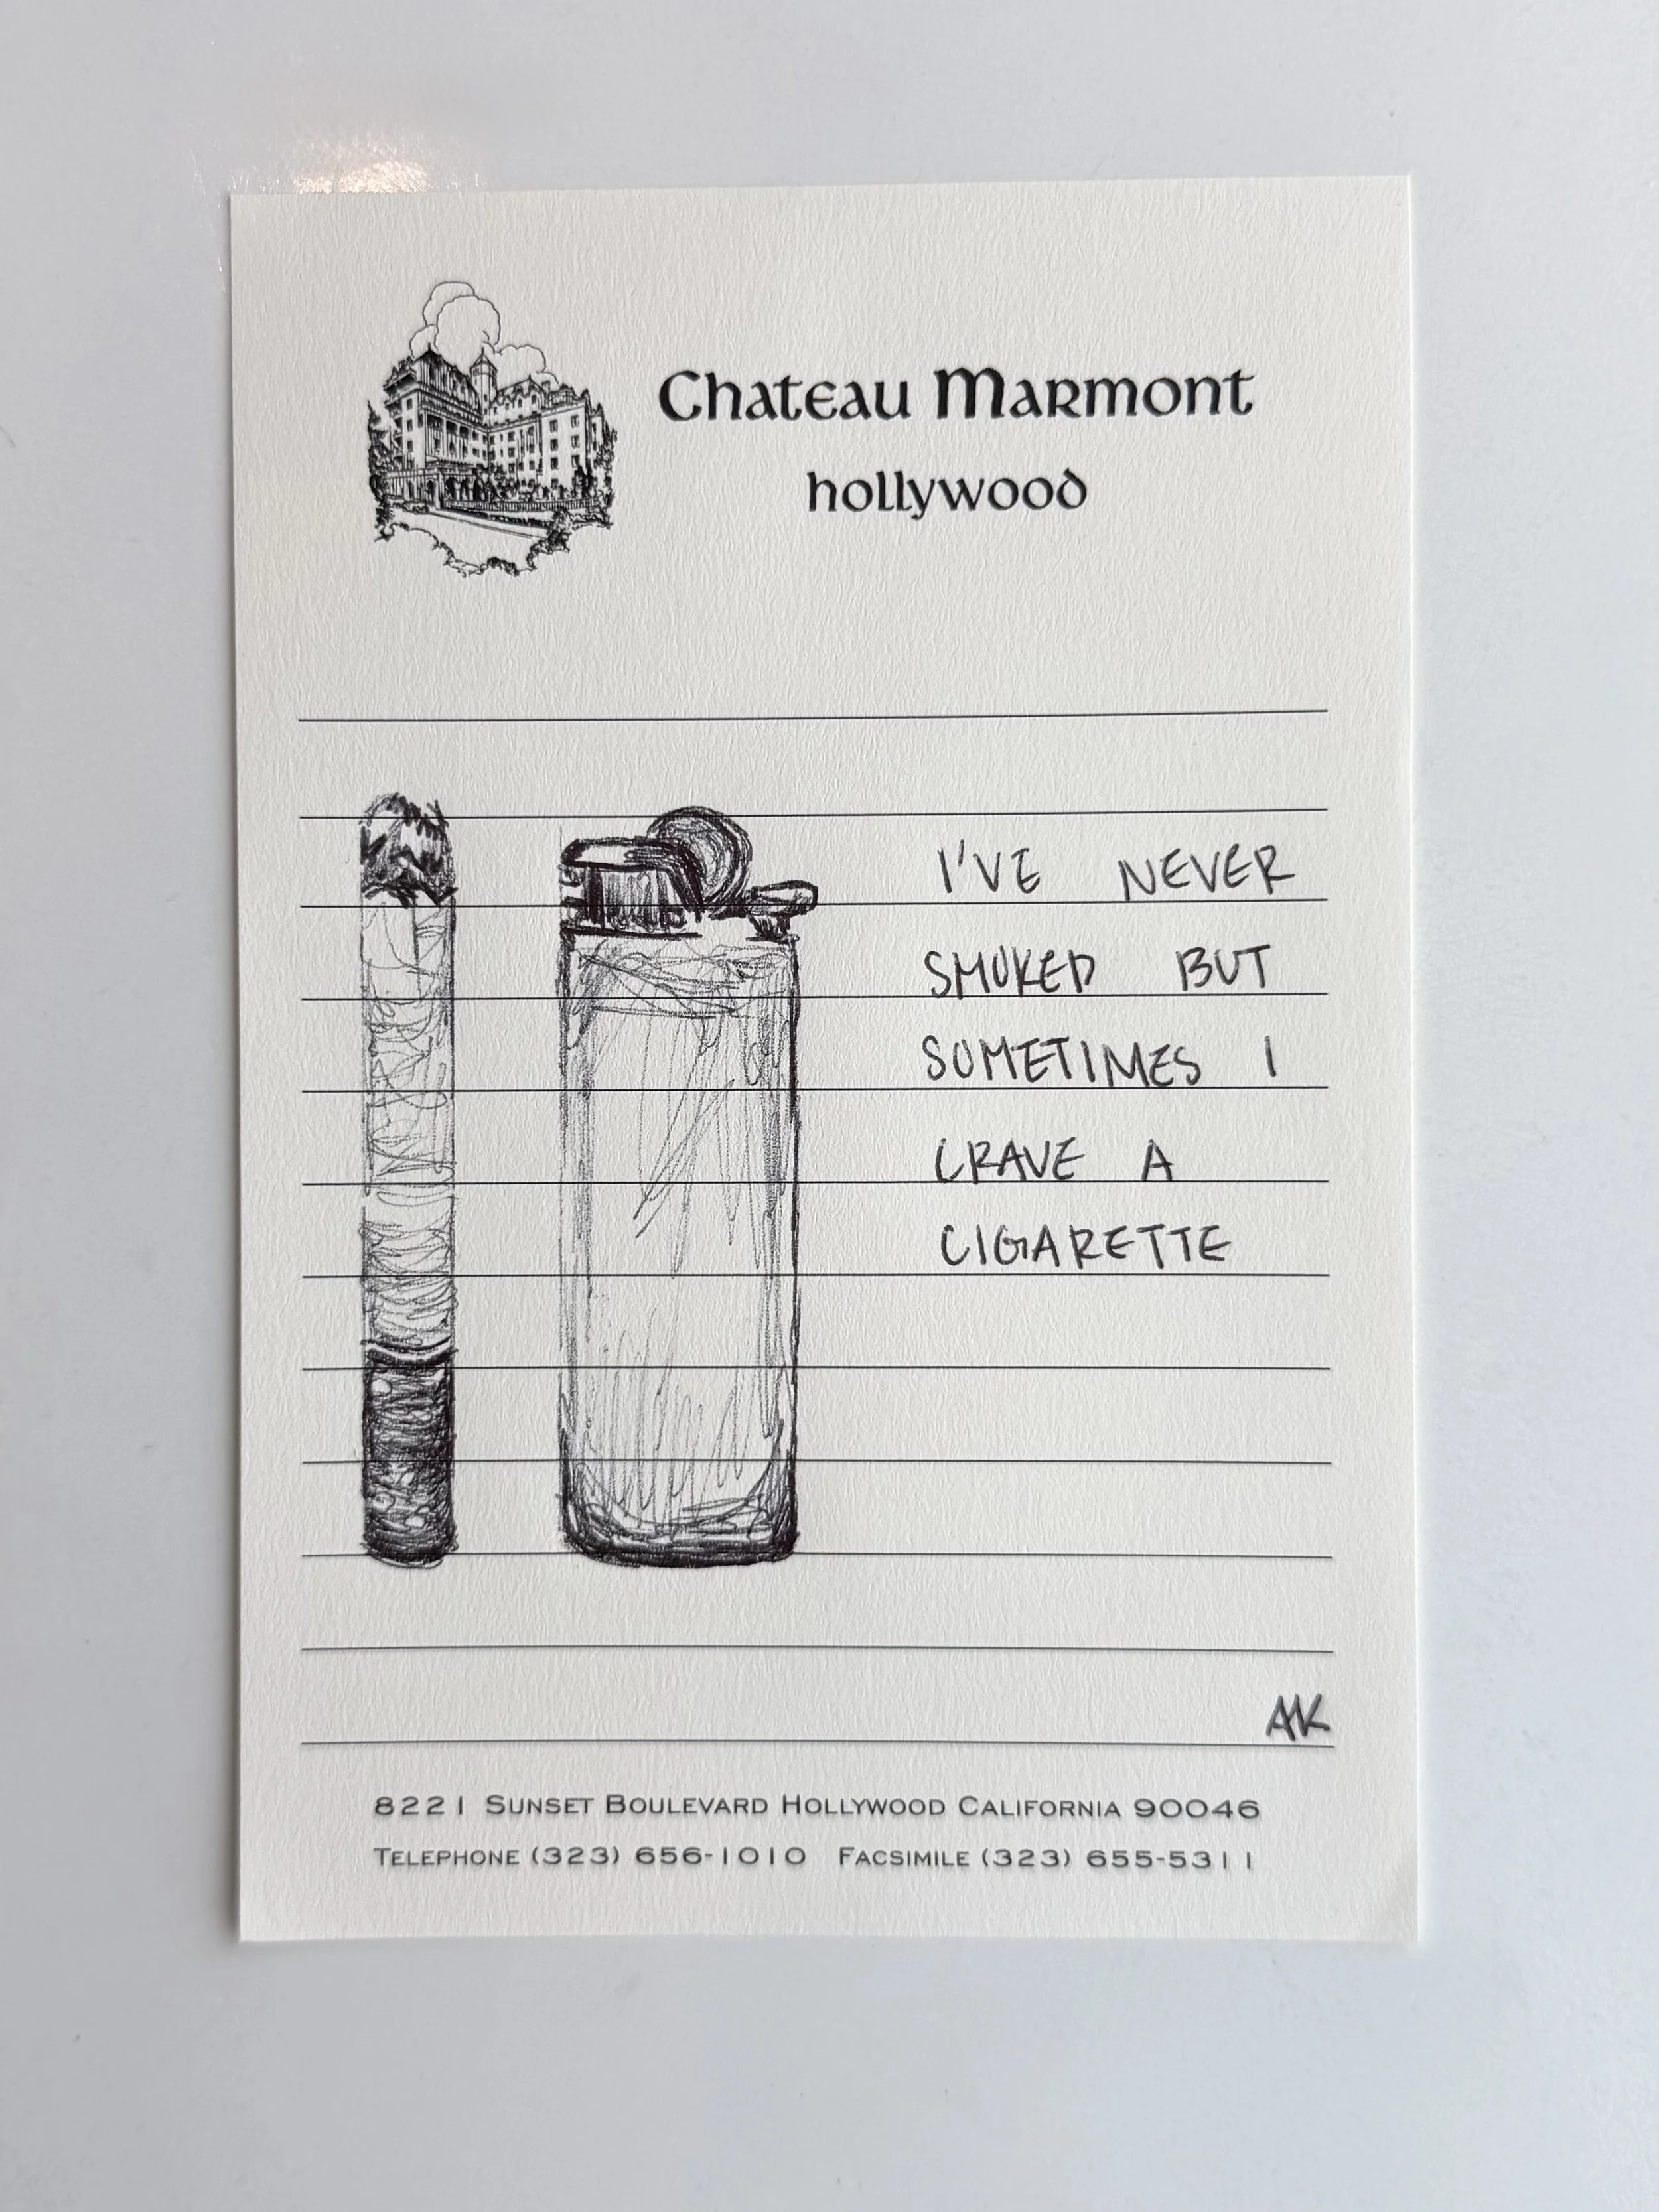 Chateau Marmont
hollywood
I'VE NEVER
SMOKED BUT
SOMETIMES I
CRAVE A
CIGARETTE
AK
8221 Sunset Boulevard Hollywood California 90046
Telephone (323) 656-1010 Facsimile (323) 655-5311